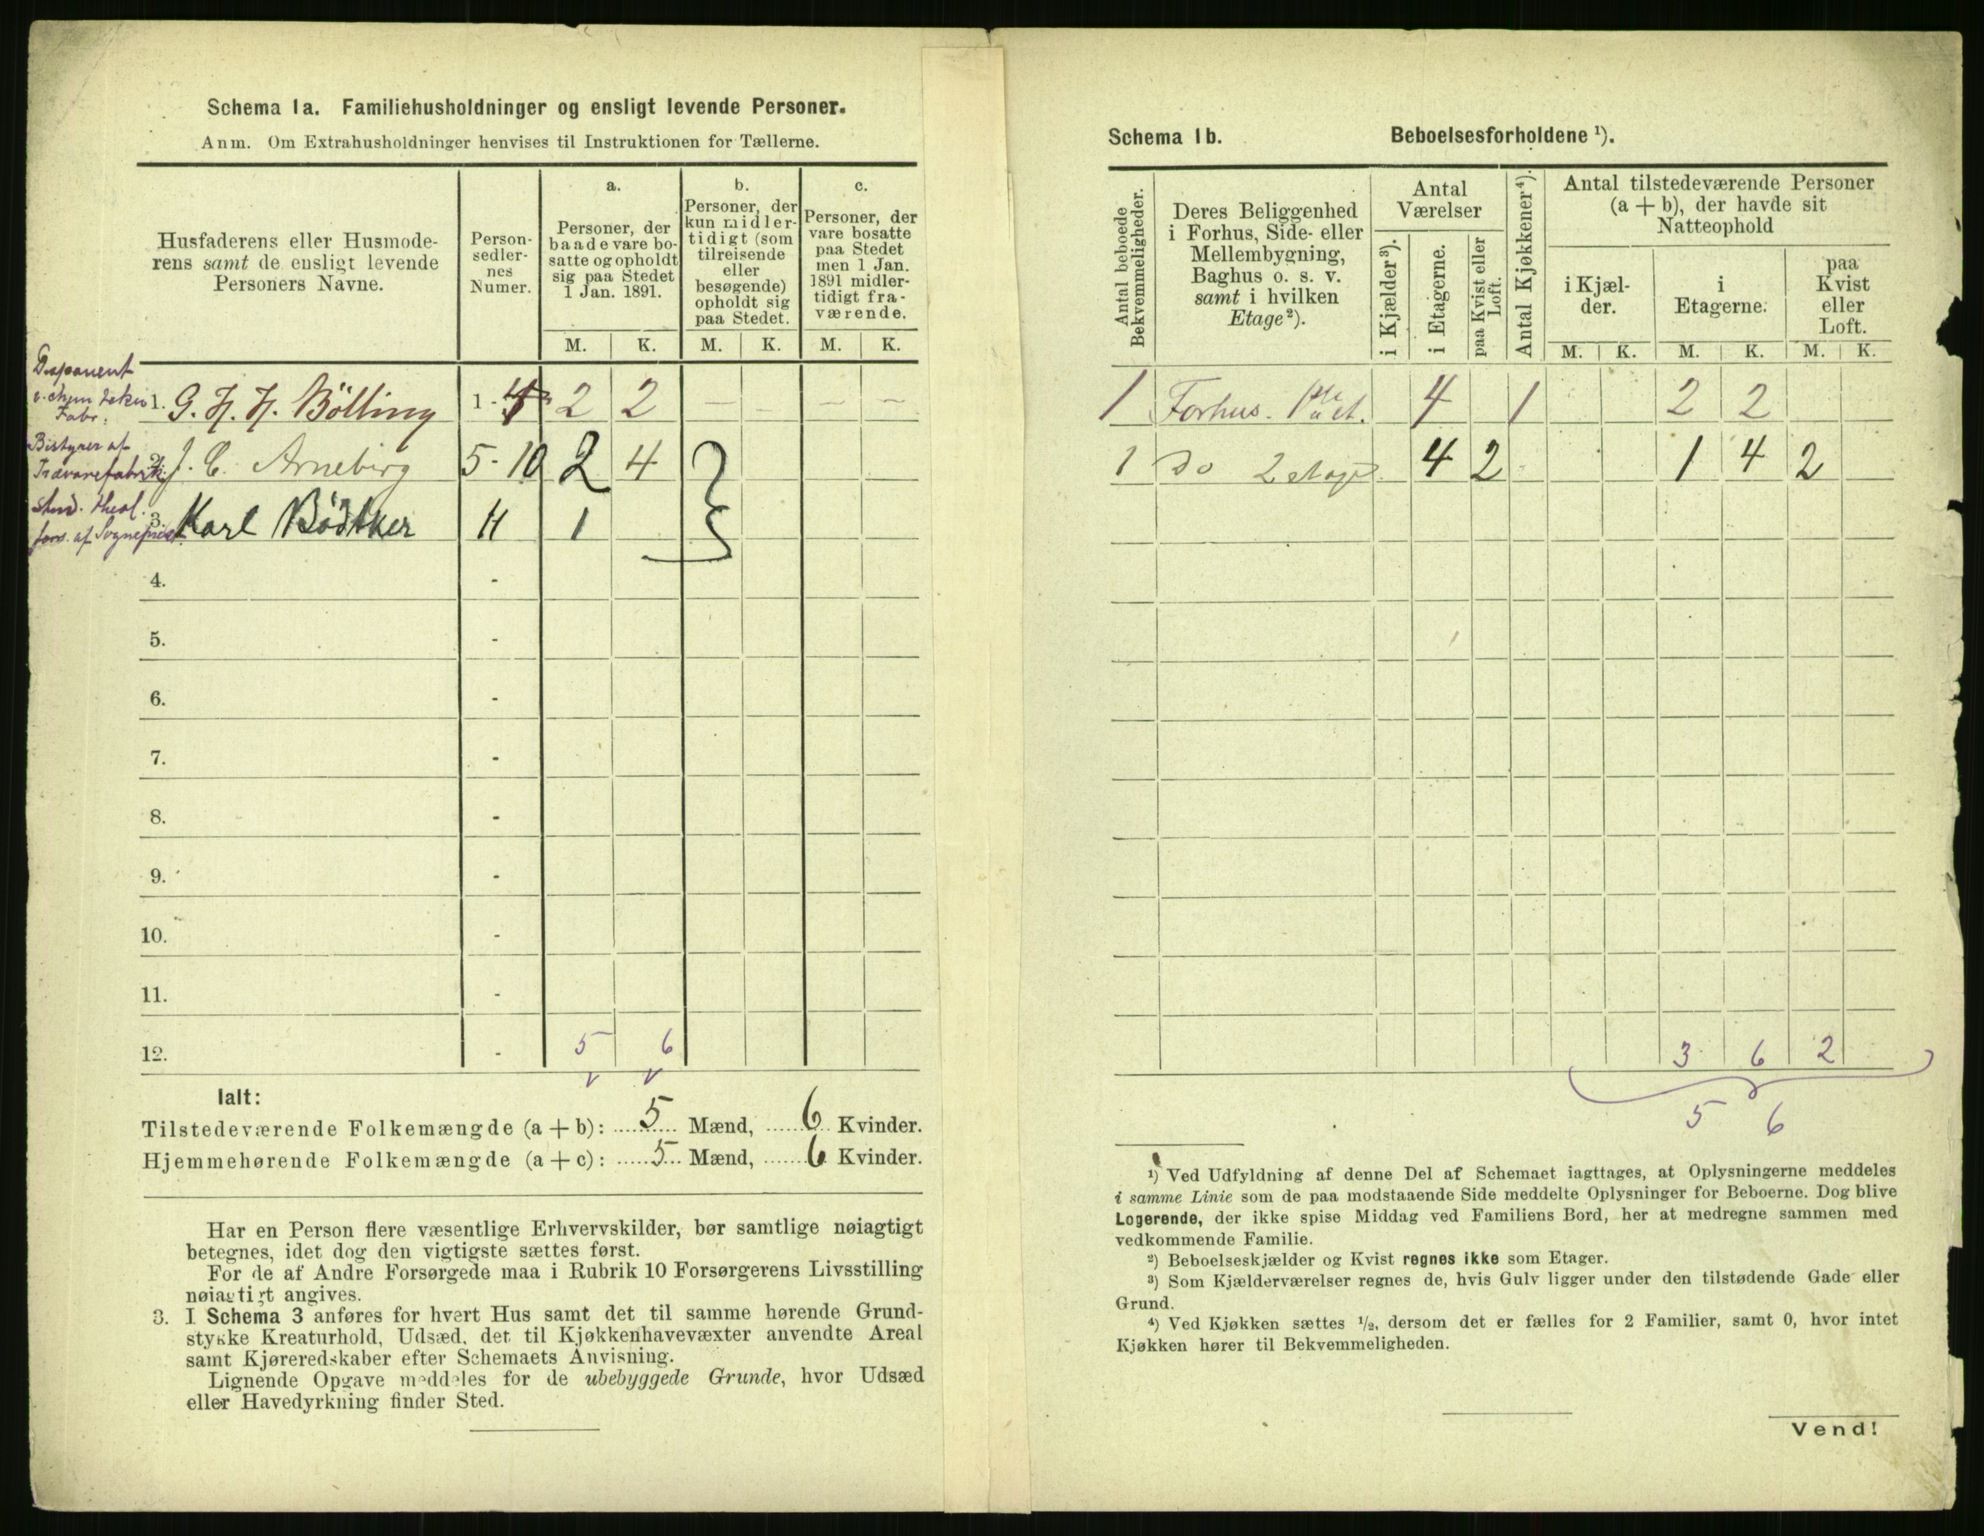 Schema 1a. Familiehusholdninger og ensligt levende Personer.
Anm. Om Extrahusholdninger henvises til Instruktionen for Tællerne.
Husfaderens eller Husmode-
rens samt de ensligt levende
Personers Navne.
Person-
sedler-
nes
Numer.
a.
Personer, der
baade vare bo-
satte og opholdt
sig paa Stedet
1 Jan. 1891.
b.
Personer, der
kun midler-
tidigt (som
tilreisende
eller
besøgende)
opholdt sig
paa Stedet.
c.
Personer, der
vare bosatte
paa Stedet
men 1 Jan.
1891 midler-
tidigt fra-
værende.
M. K. M. K. M. K.
Disponent
v. chem. 
Fabr:
1. G. H. H. Bölling 1 - 4 2 2 — — — ~
Bistyrer af
Trævarefabrik
2. J. C. Arneberg 5 - 10 2 4
stud. theol.
fors. af Sognepræst
3. Karl Bödtker 11 1
4. -
5. -
6. -
7. -
8. -
9. -
10. -
11. -
12. - 5 6
Ialt:
Tilstedeværende Folkemængde (a + b): 5 Mænd, 6 Kvinder.
Hjemmehørende Folkemængde (a + c): 5 Mænd, 6 Kvinder.
Har en Person flere væsentlige Erhvervskilder, bør samtlige nøiagtigt
betegnes, idet dog den vigtigste sættes først.
For de af Andre Forsørgede maa i Rubrik 10 Forsørgerens Livsstilling
nøiagtigt angives.
3. I Schema 3 anføres for hvert Hus samt det til samme hørende Grund-
stykke Kreaturhold, Udsæd, det til Kjøkkenhavevæxter anvendte Areal
samt Kjøreredskaber efter Schemaets Anvisning.
Lignende Opgave meddeles for de ubebyggede Grunde, hvor Udsæd
eller Havedyrkning finder Sted.
Schema 1b. Beboelsesforholdene ¹).
Antal beboede
Bekvemmeligheder.
Deres Beliggenhed
i Forhus, Side- eller
Mellembygning,
Baghus o. s. v.
samt i hvilken
Etage²).
Antal
Værelser
i Kjælder³).
i Etagerne.
paa Kvist eller
Loft.
Antal Kjøkkener⁴).
Antal tilstedeværende Personer
(a + b), der havde sit
Natteophold
i Kjæl-
der.
i
Etagerne.
paa
Kvist
eller
Loft.
M. K. M. K. M. K.
1 Forhus. 1ste et. 4 1 2 2
1 Do 2 etage 4 2 1 4 2
3 6 2
5 6
¹) Ved Udfyldning af denne Del af Schemaet iagttages, at Oplysningerne meddeles
i samme Linie som de paa modstaaende Side meddelte Oplysninger for Beboerne. Dog blive
Logerende, der ikke spise Middag ved Familiens Bord, her at medregne sammen med
vedkommende Familie.
²) Beboelseskjælder og Kvist regnes ikke som Etager.
³) Som Kjælderværelser regnes de, hvis Gulv ligger under den tilstødende Gade eller
Grund.
⁴) Ved Kjøkken sættes ½, dersom det er fælles for 2 Familier, samt 0, hvor intet
Kjøkken hører til Bekvemmeligheden.
Vend!